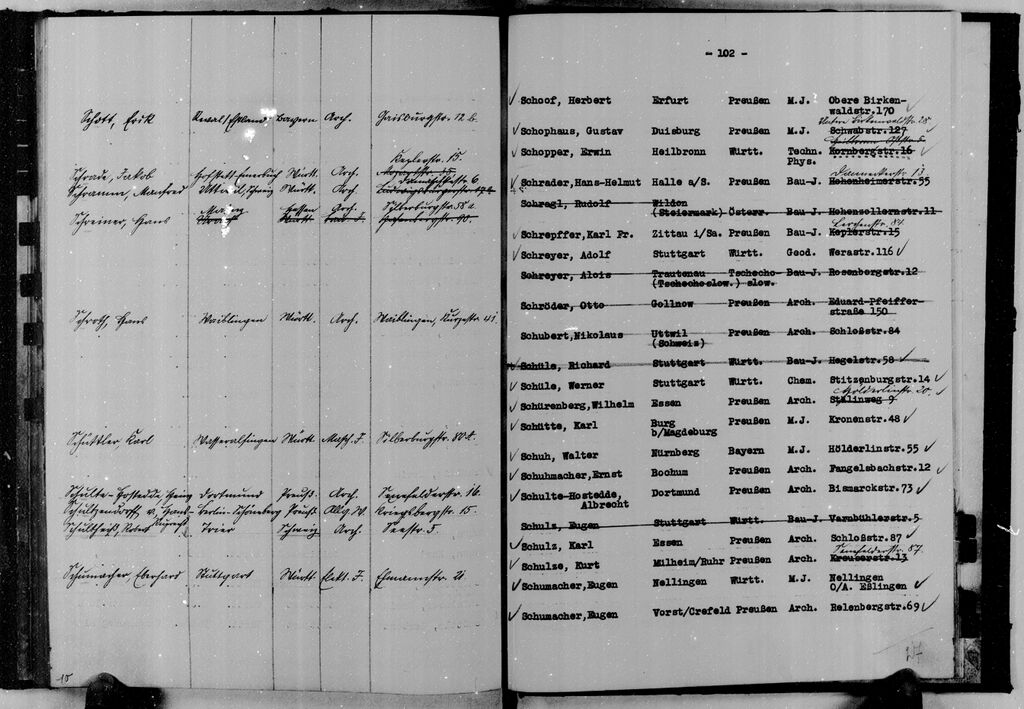 Schott, Erik Reval/Estland Bayern Arch. Gaisburgstr. 12 b
Keplerstr. 15.
Schrade, Jakob Württ. Arch.
Schramm, Manfred Württ. Arch. 6
Schreiner, Hans Mainz Hessen Arch. Silberburgstr. 58 a
Schroth, Hans Waiblingen Württ. Arch. Waiblingen, Kurzestr. 41
Schüttler, Karl Wasseralfingen Württ. Masch. I. Silberburgstr. 80
Schulte-Hostedde, Heinz Dortmund Preuß. Arch. Senefelderstr. 16.
Schultzendorff, v. Hans- Berlin-Schöneberg Preuß. Allg. W. Kriegsbergstr. 15.
Schultheiß, Robert Ruprecht Trier Schweiz Arch. Seestr. 5.
Schumacher, Eberhard Stuttgart Württ. Elekt. I.
10
- 102 -
Schoof, Herbert Erfurt Preußen M.J. Obere Birken-
waldstr.170
Untere Birkenwaldstr. 28
Schophaus, Gustav Duisburg Preußen M.J. Schwabstr.127
Schopper, Erwin Heilbronn Württ. Techn. Kornbergstr.16
Phys.
Danneckerstr. 13
Schrader,Hans-Helmut Halle a/S. Preußen Bau-J. Hohenheimerstr.55
Schragl, Rudolf Wildon
(Steiermark) Österr. Bau-J. Hohenzollernstr.11
Lerchenstr. 84
Schrepffer,Karl Fr. Zittau i/Sa. Preußen Bau-J. Keplerstr.15
Schreyer, Adolf Stuttgart Württ. Geod. Werastr.116
Schreyer, Alois Trautenau Tschecho- Bau-J. Rosenbergstr.12
(Tschechoslow.) slow.
Schröder, Otto Gollnow Preußen Arch. Eduard-Pfeiffer-
straße 150
Schubert,Nikolaus Uttwil Preußen Arch. Schloßstr.84
(Schweiz)
Schüle, Richard Stuttgart Württ. Bau-J. Hegelstr.58
Schüle, Werner Stuttgart Württ. Chem. Stitzenburgstr.14
Hölderlinstr. 20.
Schürenberg,Wilhelm Essen Preußen Arch. Stälinweg 9
Schütte, Karl Burg Preußen M.J. Kronenstr.48
b/Magdeburg
Schuh, Walter Nürnberg Bayern M.J. Hölderlinstr.55
Schuhmacher,Ernst Bochum Preußen Arch. Fangelsbachstr.12
Schulte-Hostedde, Dortmund Preußen Arch. Bismarckstr.73
Albrecht
Schulz, Eugen Stuttgart Württ. Bau-J. Varnbühlerstr.5
Schulz, Karl Essen Preußen Arch. Schloßstr.87
Senefelderstr. 87.
Schulze, Kurt Mülheim/Ruhr Preußen Arch. Kreuserstr.13
Schumacher,Eugen Nellingen Württ. M.J. Nellingen
O/A. Eßlingen
Schumacher,Eugen Vorst/Crefeld Preußen Arch. Relenbergstr.69